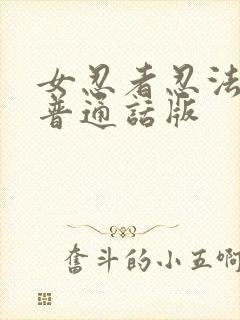 女忍者忍法
普通話版
奮斗的小五啊